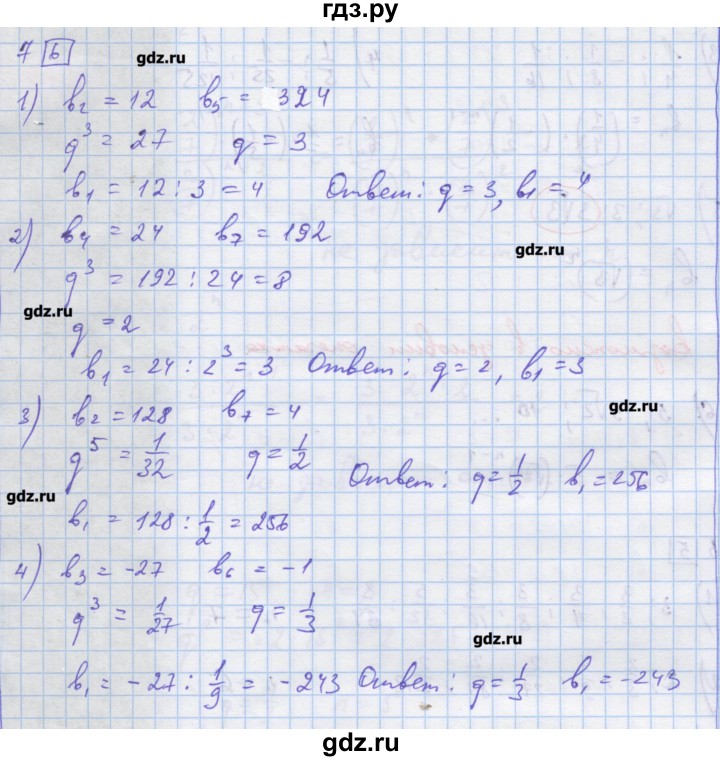 гдз.ру
7 6
gdz.ru
1) b₂ = 12 b₅ = 324
q³ = 27 q = 3
b₁ = 12 : 3 = 4 Ответ: q = 3, b₁ = 4
2) b₄ = 24 b₇ = 192
gdz.ru
q³ = 192 : 24 = 8
gdz.ru
q = 2
b₁ = 24 : 2³ = 3 Ответ: q = 2, b₁ = 3
3) b₂ = 128 b₇ = 4
gdz.ru
q⁵ = 1/32 q = 1/2
Ответ: q = 1/2 b₁ = 256
gdz.ru
b₁ = 128 : 1/2 = 256
4) b₃ = -27 b₆ = -1
q³ = 1/27 q = 1/3
gdz.ru
b₁ = -27 : 1/9 = -243 Ответ: q = 1/3 b₁ = -243
gdz.ru